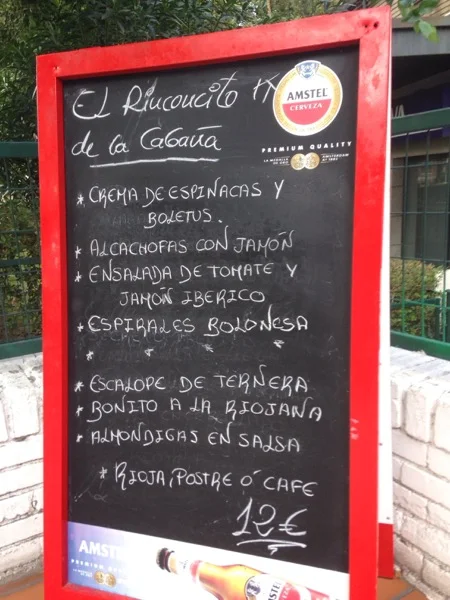 EL Rinconcito
de la Cabaña
AMSTEL
CERVEZA
PREMIUM QUALITY
* CREMA DE ESPINACAS Y
BOLETUS.
* ALCACHOFAS CON JAMÓÑ
* ENSALADA DE TOMATE Y
JAMÓÑ IBERICO
* ESPIRALES BOLOÑESA
*
* ESCALOPE DE TERNERA
* BONITO A LA RIOJANA
* ALMONDIGAS EN SALSA
* RIOJA, POSTRE Ó CAFE
12€
AMSTEL
PREMIUM